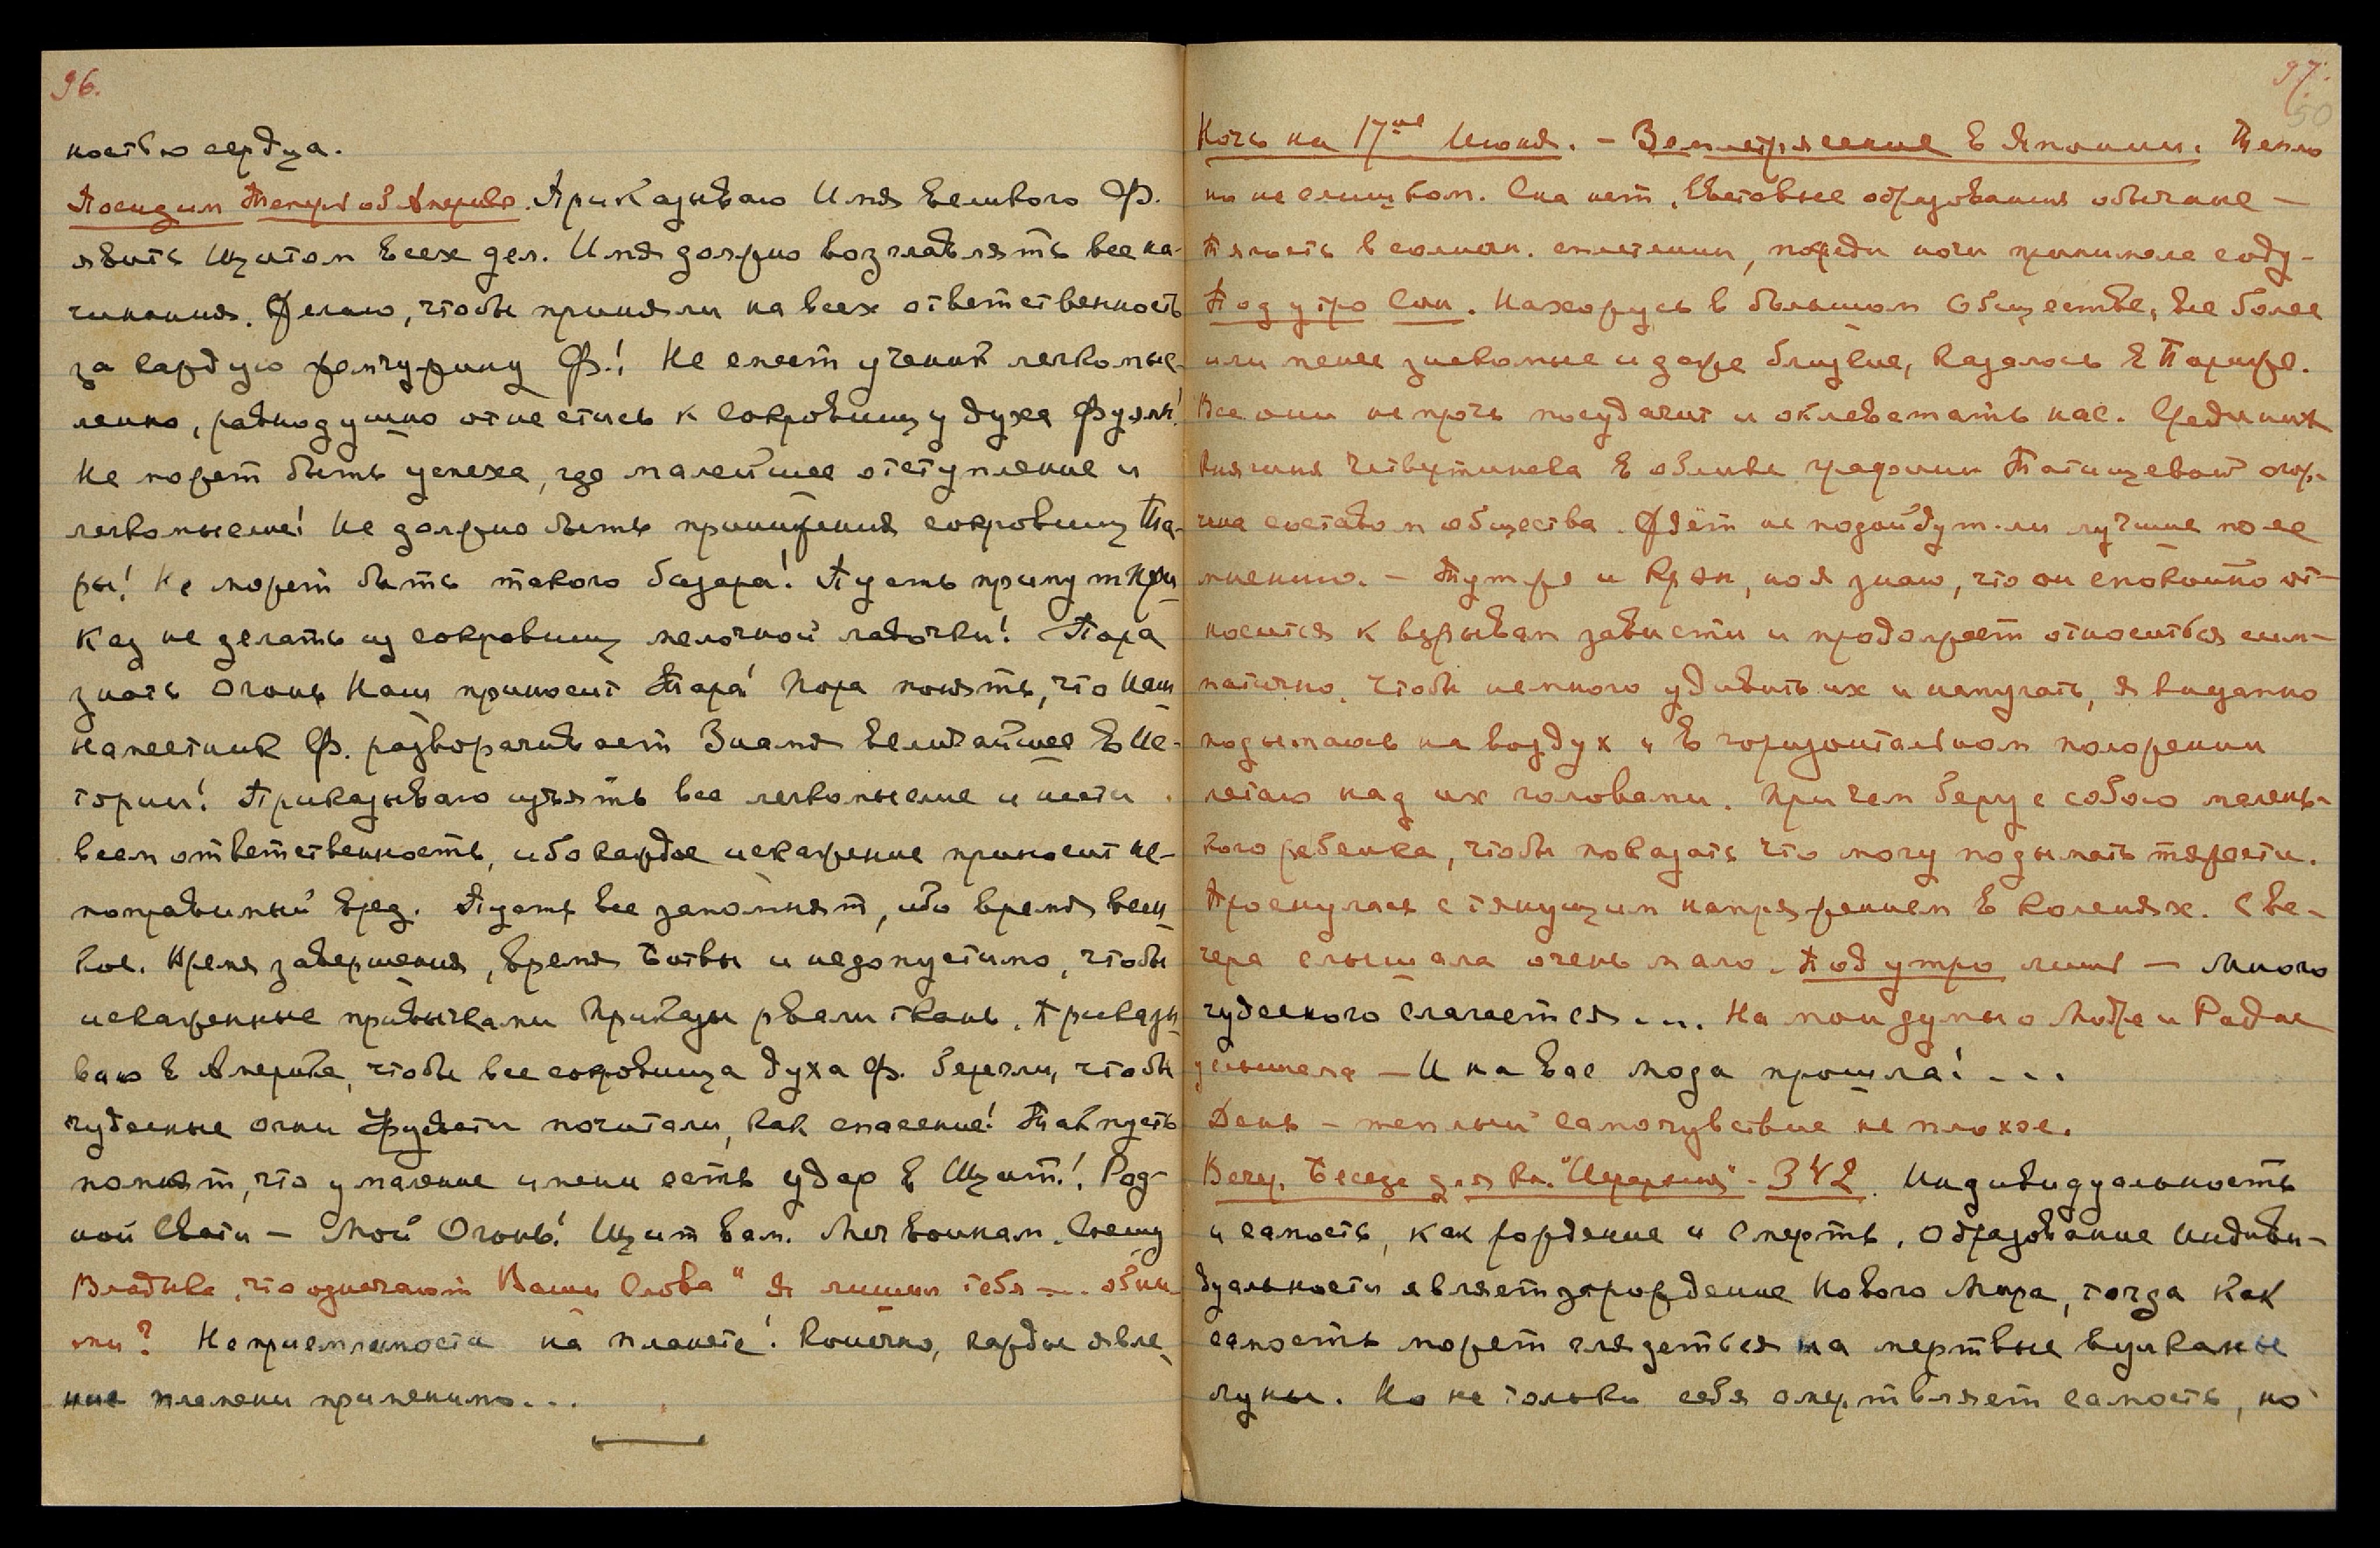 96.
ностью сердца.
Посидим Теперь об Америке. Приказываю Имя великого Ф.
явить Щитом всех дел. Имя должно возглавлять все на-
чинания. Желаю, чтобы приняли на всех ответственность
за каждую жемчужину Ф.! Не смеет ученик легкомыс-
ленно, равнодушно отнестись к сокровищу духа Фуямы!
Не может быть успеха, где малейшее отступление и
легкомыслие! Не должно быть принижения сокровищ Та-
ры! Не может быть такого базара! Пусть примут При-
каз не делать из сокровищ мелочной лавочки! Пора
знать Огонь Наш приносит Тара! Пора понять, что Наш
наместник Ф. разворачивает Знамя величайшее в Ис-
тории! Приказываю изъять все легкомыслие и нести
всем ответственность, ибо каждое искажение приносит не-
поправимый вред. Пусть все запомнят, ибо время вели-
кое. Время завершения, время Битвы и недопустимо, чтобы
искаженные привычками Приказы рвали ткань. Приказы-
ваю в Америке, чтобы все сокровища духа Ф. берегли, чтобы
чудесные огни почитали, как спасение! Так пусть
помнят, что умаление имени есть удар в Щит! Род-
ной Свати — Мой Огонь! Щит вам. Меч воинам. Спешу
Владыка, что означают Ваши Слова " Я лишил тебя —.. обни
ми? Неприемлемости на планете! Конечно, каждое явле
ние пламени применимо...
97.
50
Ночь на 17ое Июня. – Землетрясение в Японии. Тепло
но не слишком. Сна нет, Световые образования обычные —
Тягость в солнечн. сплетении, посреди ночи принимала соду-
Под утро Сон. Нахожусь в большом Обществе, все более
или менее знакомые и даже близкие, казалось в Париже.
Все они не прочь посудачить и оклеветать нас. Среди них
Княгиня Четвертинская в облике графини Татищевой огор-
чена составом общества. Ждёт не подойдут ли лучшие по ее
мнению. — Тут же и но я знаю, что он спокойно от-
носится к взрывам зависти и продолжает относиться сим-
патично. Чтобы немного удивить их и напугать, я внезапно
подымаюсь на воздух и в горизонтальном положении
летаю над их головами. При чем беру с собою малень-
кого ребенка, чтобы показать что могу подымать тяжести.
Проснулась с тянущим напряжением в коленях. С ве-
чера слышала очень мало. Под утро лишь — Много
чудесного слагается... На мои думы о Модре и Радне
услышала — И на вас мода прошла! ...
День – теплый самочувствие не плохое.
Вечер. Беседа для кн. "Иерархия" - 342. Индивидуальность
и самость, как рождение и смерть. Образование индиви-
дуальности являет зарождение Нового Мира, тогда как
самость может глядеться на мертвые вулканы
луны. Но не только себя омертвляет самость, но